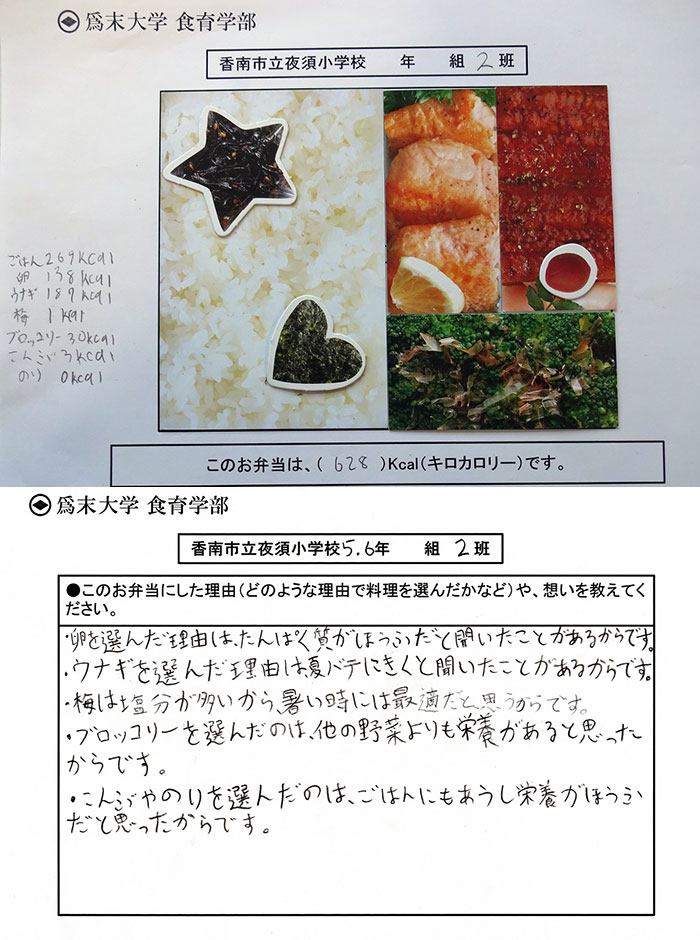 為末大学 食育学部
香南市立夜須小学校 年 組 2 班
ごはん 269kcal
卵 138kcal
ウナギ 189kcal
梅 1kcal
ブロッコリー 30kcal
こんぶ 3kcal
のり 0kcal
このお弁当は、( 628 )Kcal(キロカロリー)です。
為末大学 食育学部
香南市立夜須小学校5.6年 組 2 班
●このお弁当にした理由(どのような理由で料理を選んだかなど)や、想いを教えてく
ださい。
・卵を選んだ理由は、たんぱく質がほうふだと聞いたことがあるからです。
・ウナギを選んだ理由は夏バテにきくと聞いたことがあるからです。
・梅は塩分が多いから、暑い時には最適だと思うからです。
・ブロッコリーを選んだのは、他の野菜よりも栄養があると思った
からです。
・こんぶやのりを選んだのは、ごはんにもあうし栄養がほうふ
だと思ったからです。